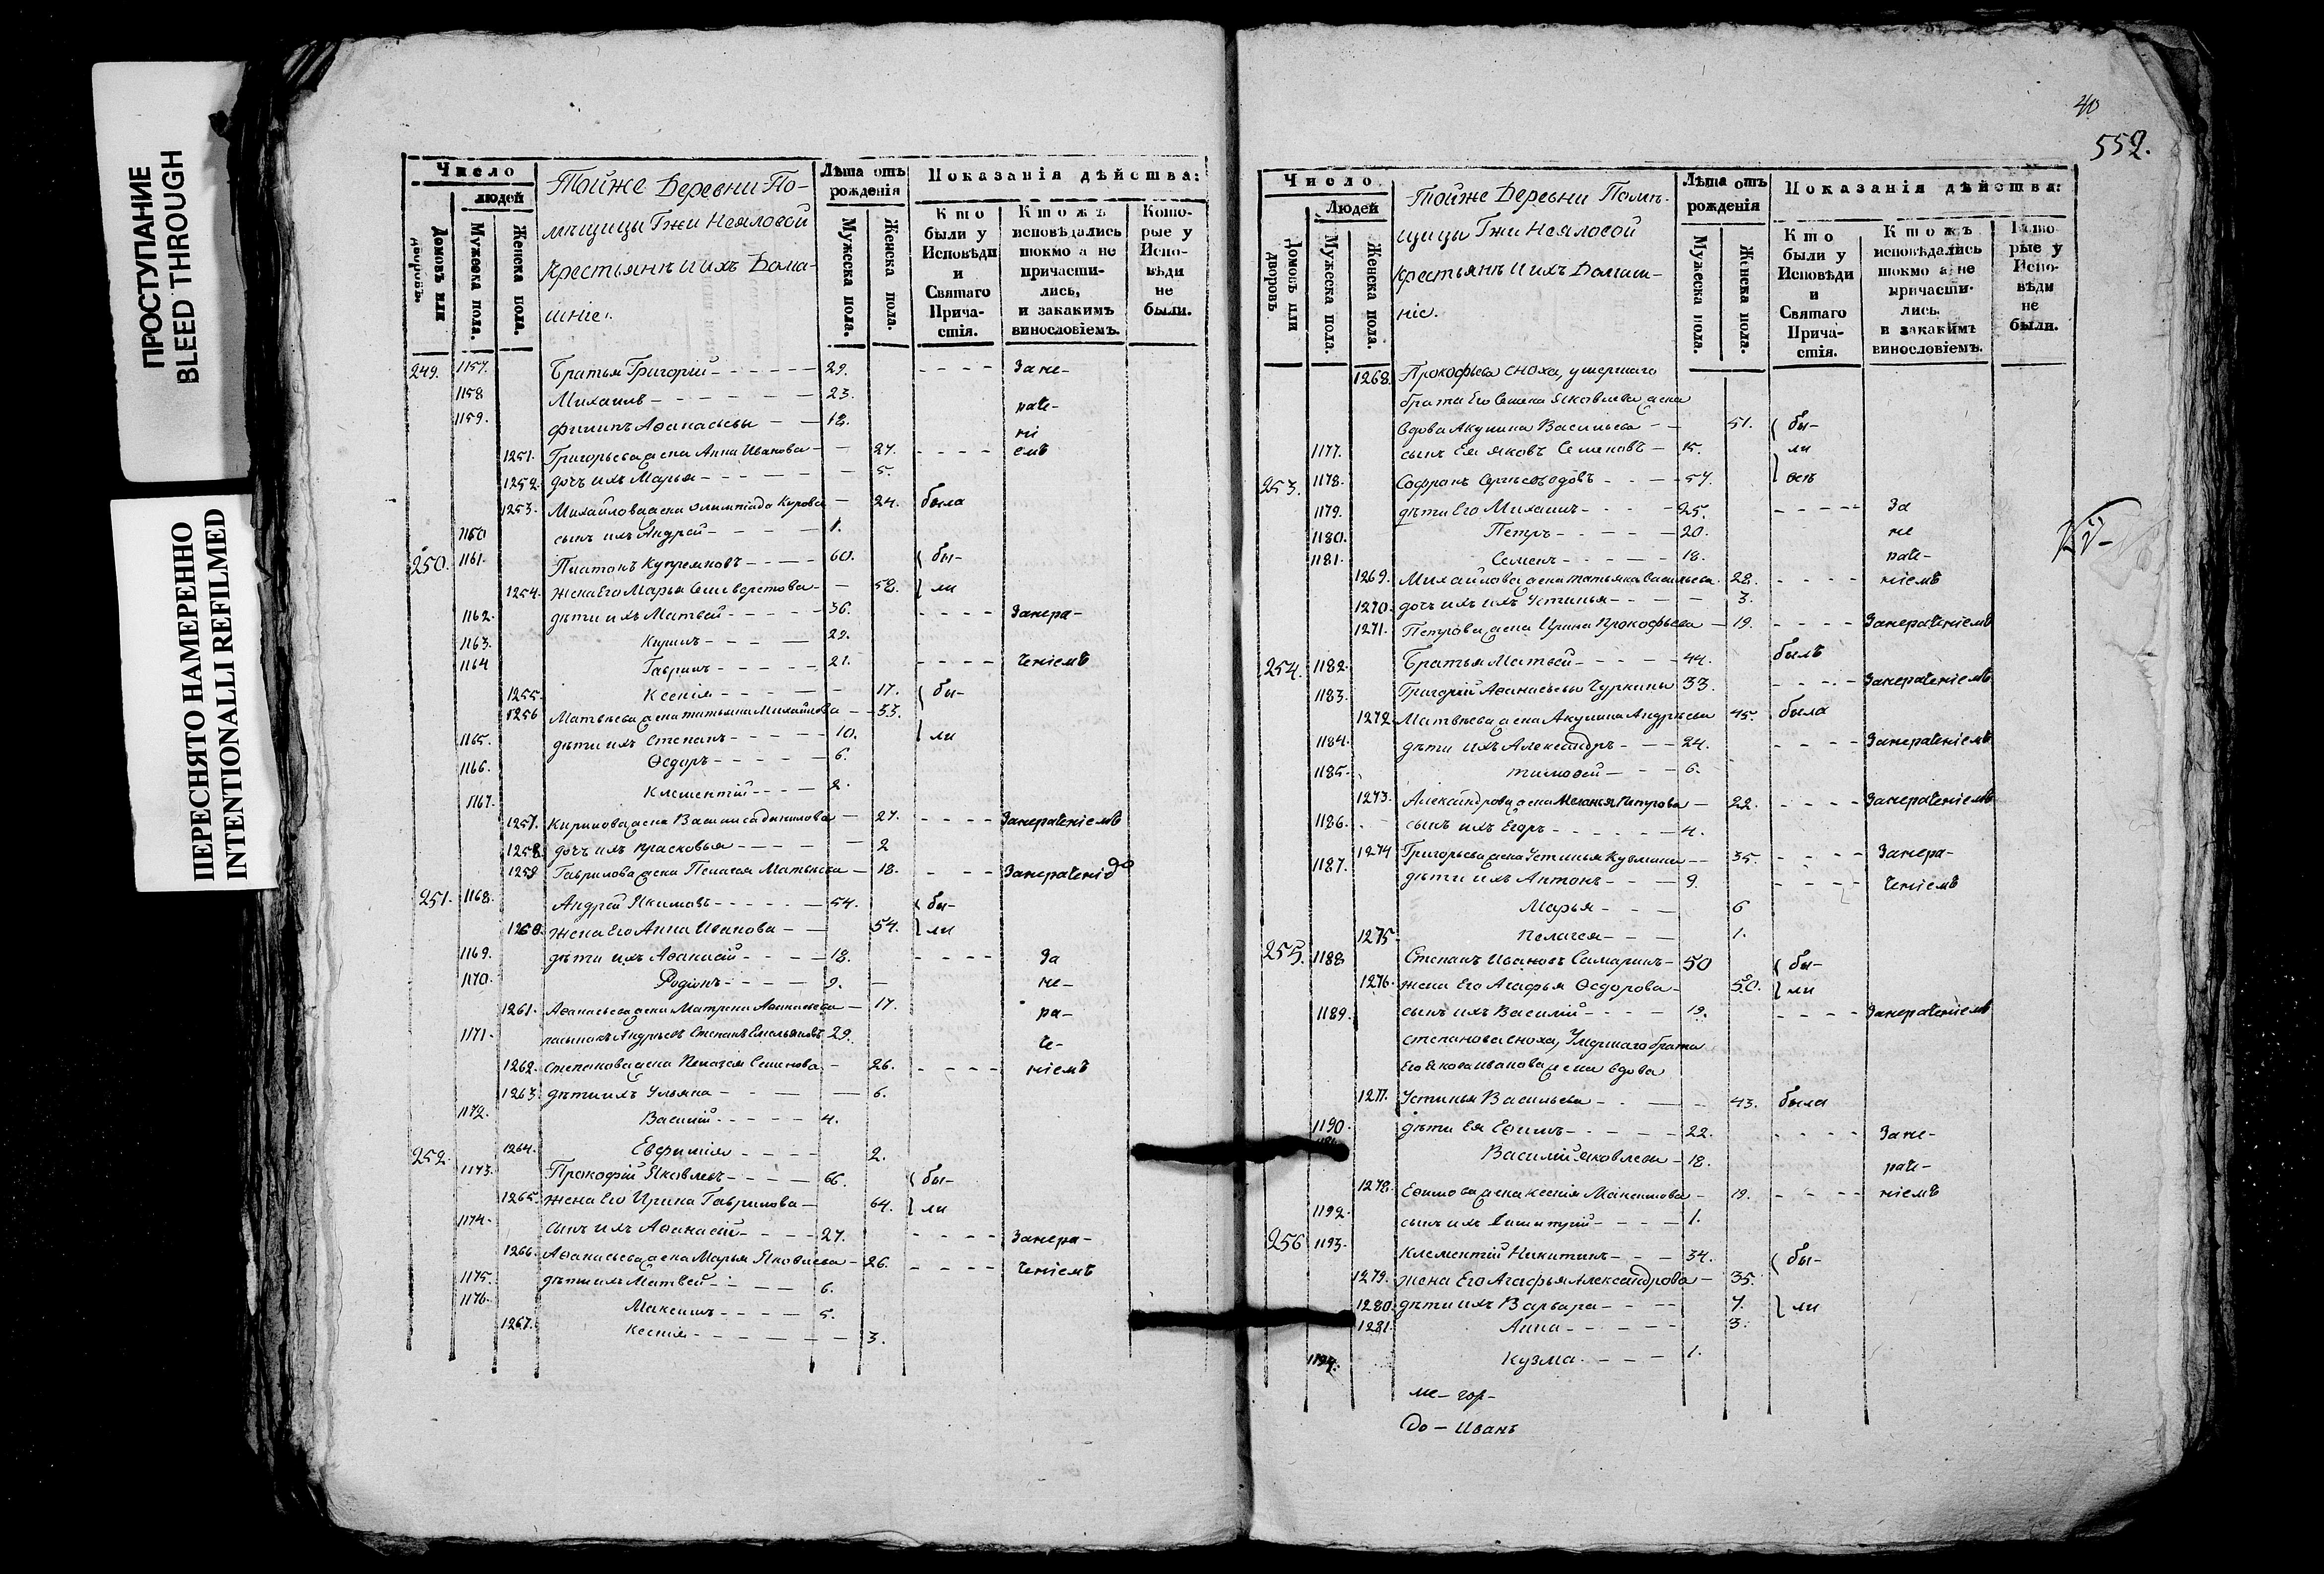 ПРОСТУПАНИЕ
BLEED THROUGH
ПЕРЕСНЯТО НАМЕРЕННО
INTENTIONALLI REFILMED
Число
людей
Домовъ или дворовъ.
Мужеска пола.
Женска пола.
Тойже Деревни По-
мѣщицы Гжи Неяловой
крестьянѣ и ихъ Дома-
шніе.
Лѣта отъ рождения
Мужеска пола.
Женска пола.
Показанія дѣйства:
Кто были у Исповѣди и Святаго Прича-стія.
Ктожъ исповѣдались токмо а не причасти-лись, и закакимъ винословіемъ.
Кото-рые у Испо-вѣди не были.
249. 1157. Братья Григорій 29. Зане-
1158 Михаилъ 23. раче-
1159. Филипъ Аѳанасьевы 18. ні
1251. Григорьева жена Анна Иванова 27. емъ
1252. дочь ихъ Марья 5.
1253. Михайлова жена Олимпіада Кирова 24. была
1160 сынъ ихъ Андрей 1.
250. 1161. Платонъ Купреяновъ 60. бы-
1254. жена Его Марья Селиверстова 58. ли
1162. дѣти ихъ Матвей 36. Занера-
1163. Кирилъ 29.
1164 Гаврилъ 21. ченіемъ
1255. Ксенія 17. бы-
1256 Матвѣева жена татьяна Михайлова 33.
1165. дѣти ихъ Степанъ 10. ли
1166. Ѳедоръ 6.
1167. Клементій 2.
1257. Кирилова жена Василиса данилова 27. Занераченіемъ
1258. дочь ихъ Прасковья 2
1259 Гаврилова жена Пелагея Матвѣева 18. Занерачені
251. 1168. Андрей Якимовъ 54. бы-
1260. жена Его Анна Иванова 54. ли
1169. дѣти ихъ Аѳанасій 18. За
1170. Родіонъ 9. не-
1261. Аѳанасьева жена Матрена Аѳанасьева 17. ра-
1171. Степанъ Емельяновъ 29. че-
1262. степанова жена Пелагея Семенова 26. ніемъ
1263. дѣти ихъ Ульяна 6.
1172. Василій 4.
1264. Евфимія 2.
252. 1173. Прокофій Яковлевъ 66. бы-
1265. жена Его Ирина Гаврилова 64. ли
1174. сынъ ихъ Аѳанасій 27. Занера-
1266. Аѳанасьева жена Марья Яковлева 26. ченіемъ
1175. дѣти ихъ Матвей 6.
1176. Максимъ 5.
1267. Ксенія 3.
552.
Число
Людей
Домовъ или дворовъ
Мужеска пола.
Женска пола.
Тойже Деревни Помѣ-
щицы Гжи Неяловой
крестьянѣ и ихъ Домаш-
ніе.
Лѣта отъ рождения
Мужеска пола.
Женска пола.
Показанія дѣйства:
Кто были у Исповѣди и Святаго Прича-стія.
Ктожъ исповѣдались токмо а не причасти-лись. и закакимъ винословіемъ.
Кото-рые у Испо-вѣди не были.
1268. Прокофьева сноха, умершаго
брата Его Семена Яковлева жена
вдова Акулина Васильева 51. бы-
1177. сынъ Ея Яковъ Семеновъ 15. ли
253. 1178. Софронъ 57.
1179. дѣти Его Михаилъ 25. За
1180. Петръ 20. не
1181. Семенъ 18. раче-
1269. Михайлова жена татьяна васильева 28. ніемъ
1270. дочь ихъ Устинья 3.
1271. Петрова жена Ирина Прокофьева 19. Занераченіемъ
254. 1182. Братья Матвей 44. былъ
1183. Григорій Аѳанасьевы Чуркины 33. Занераченіемъ
1272. Матвѣева жена Акулина Андрѣева 45. была
1184. дѣти ихъ Александръ 24. Занераченіемъ
1185. тимоѳей 6.
1273. Александрова жена Меланья Петрова 22. Занераченіемъ
1186. сынъ ихъ Егоръ 4.
1274 Григорьева жена Устинья Кузмина 35. Занера-
1187. дѣти ихъ Антонъ 9. ченіемъ
Марья 6
1275. Пелагея 1.
255. 1188 Степанъ Ивановъ Самаринъ 50 бы-
1276. жена Его Агафья Ѳедорова 50. ли
1189. сынъ ихъ Василій 19. Занераченіемъ
степанова сноха, Умершаго брата
Его Якова иванова жена вдова
1277. Устинья Васильева 43. была
1190. дѣти Ея Еѳимъ 22. Зане-
Василій яковлевы 18. раче-
1278. Еѳимова жена ксенія Максимова 19. ніемъ
1192. сынъ ихъ Димитрій 1.
256 1193. Клементій Никитинъ 34. бы-
1279. жена Его Агафья Александрова 35.
1280. дѣти ихъ Варвара 7. ли
1281. Анна 3.
1194. Кузма 1.
ме- гор-
До - Иванъ